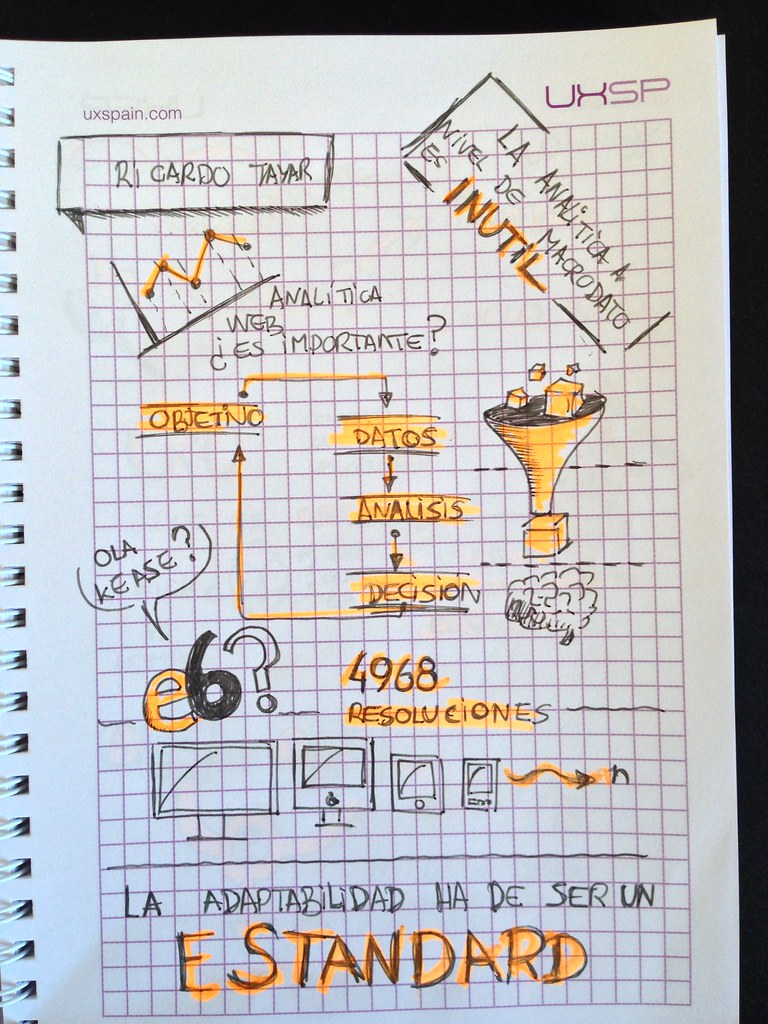 uxspain.com
UXSP
RICARDO TAYAR
LA ANALÍTICA A
NIVEL DE MACRODATO
ES INUTIL
ANALÍTICA
WEB
¿ES IMPORTANTE?
OBJETIVO
DATOS
ANALISIS
DECISION
OLA
KEASE?
e6?
4968
RESOLUCIONES
n
LA ADAPTABILIDAD HA DE SER UN
ESTANDARD